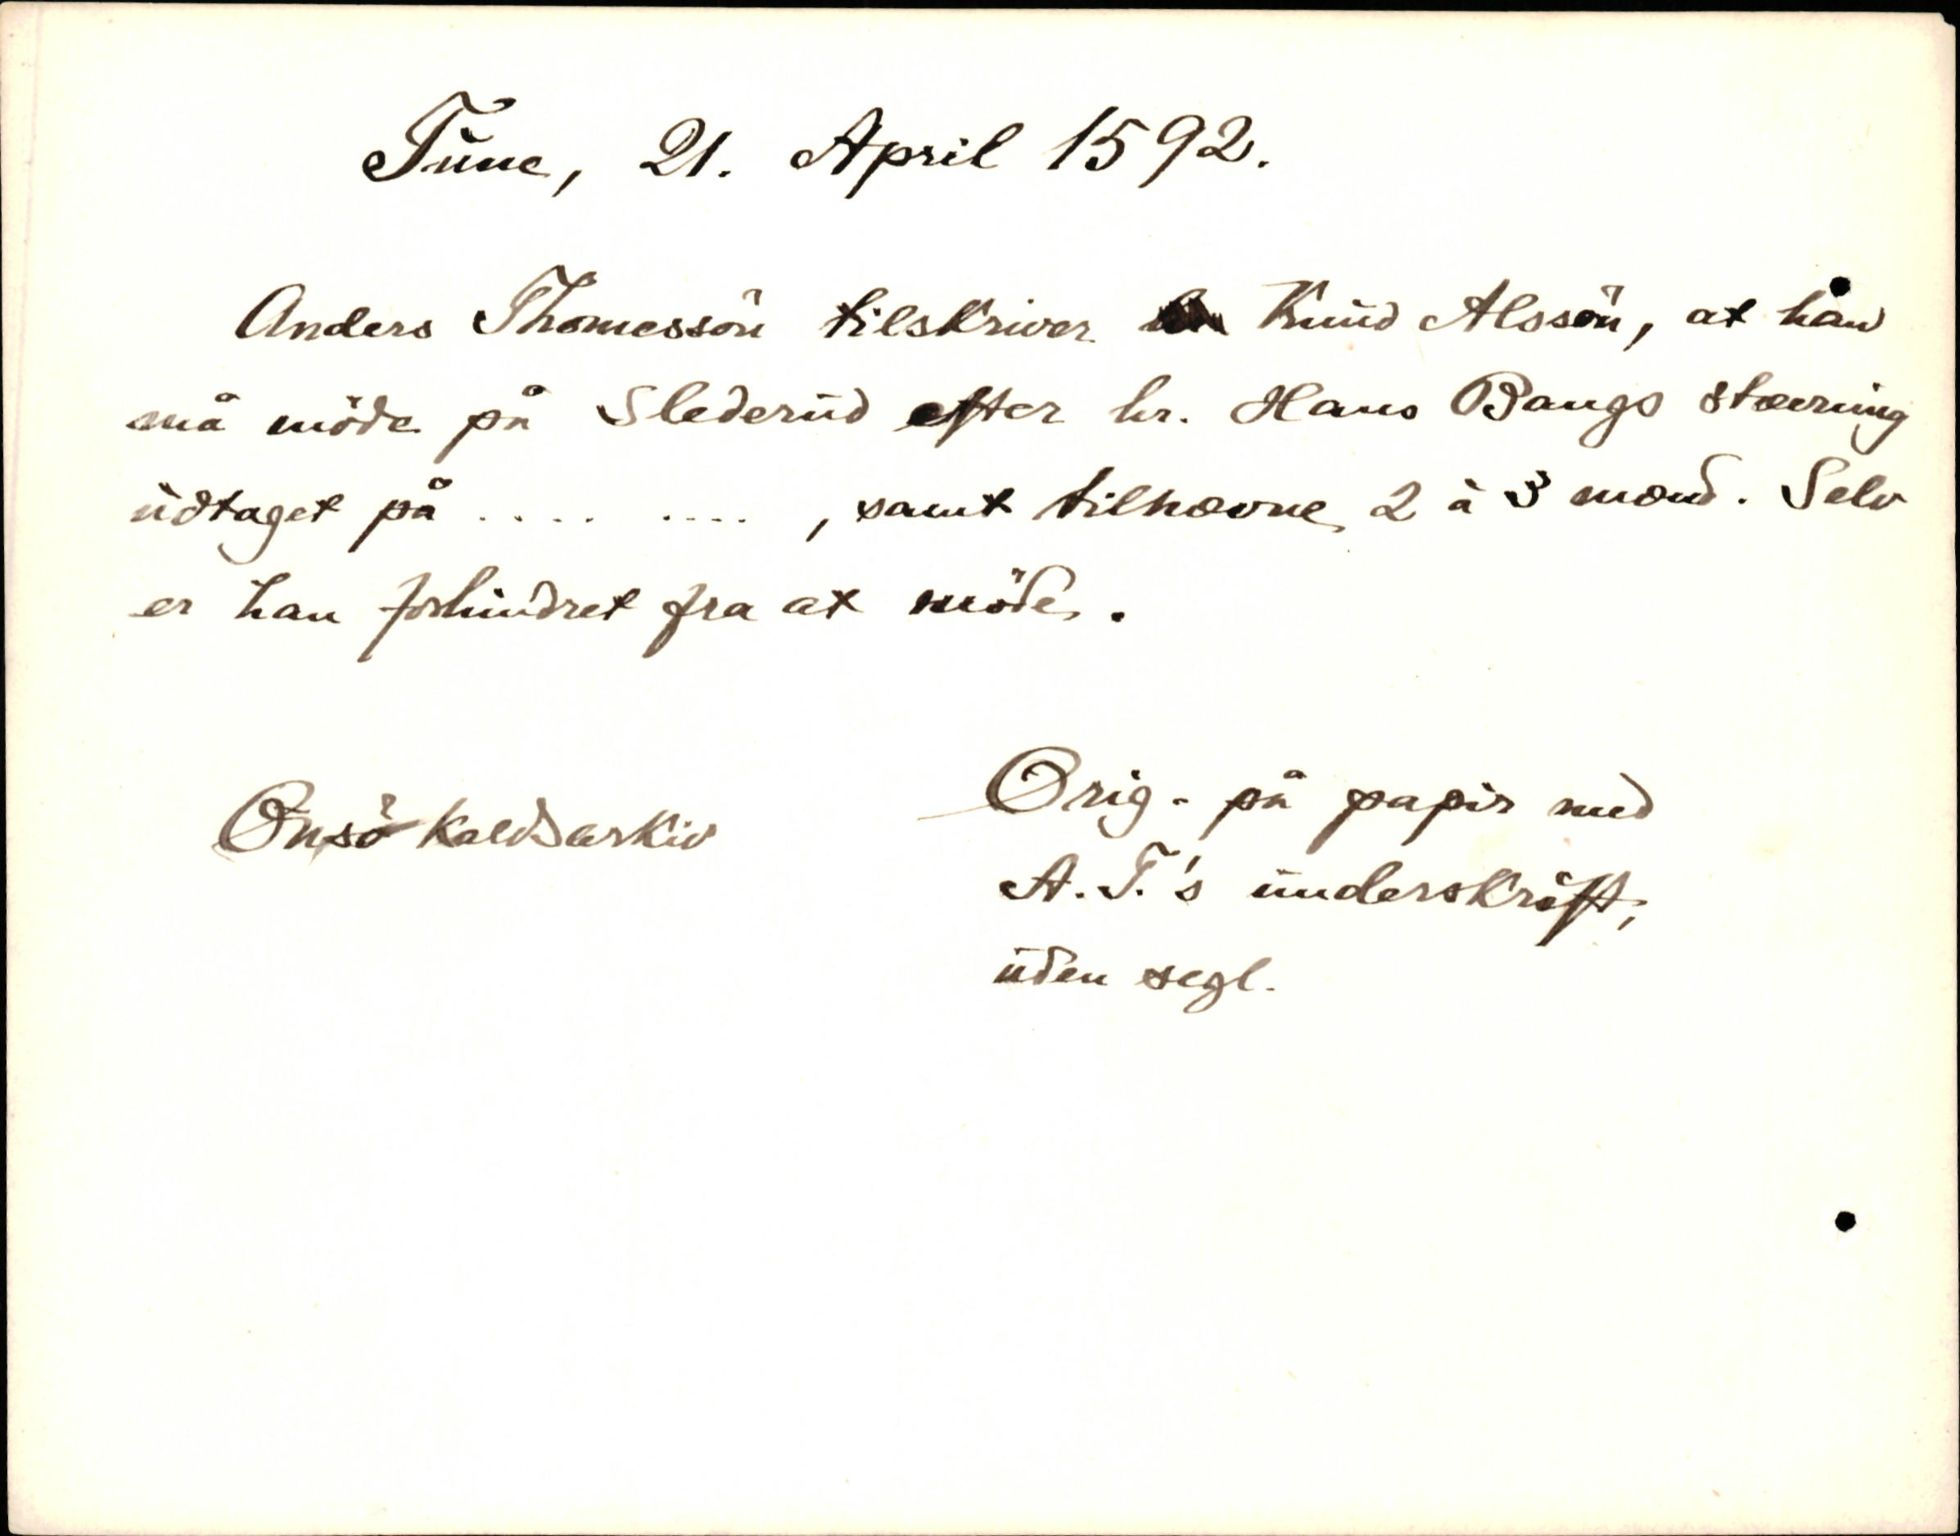 Tune, 21. April 1592.
Anders Thomessön tilskriver Knud Alssön, at han
må möde på Slederud efter hr. Hans Bangs stævning
udtaget på .... ...., samt tilnævne 2 à 3 mænd. Selv
er han forhindret fra at möde.
Onsö kaldsarkiv
Orig. på papir med
A. T.'s underskrift,
uden segl.